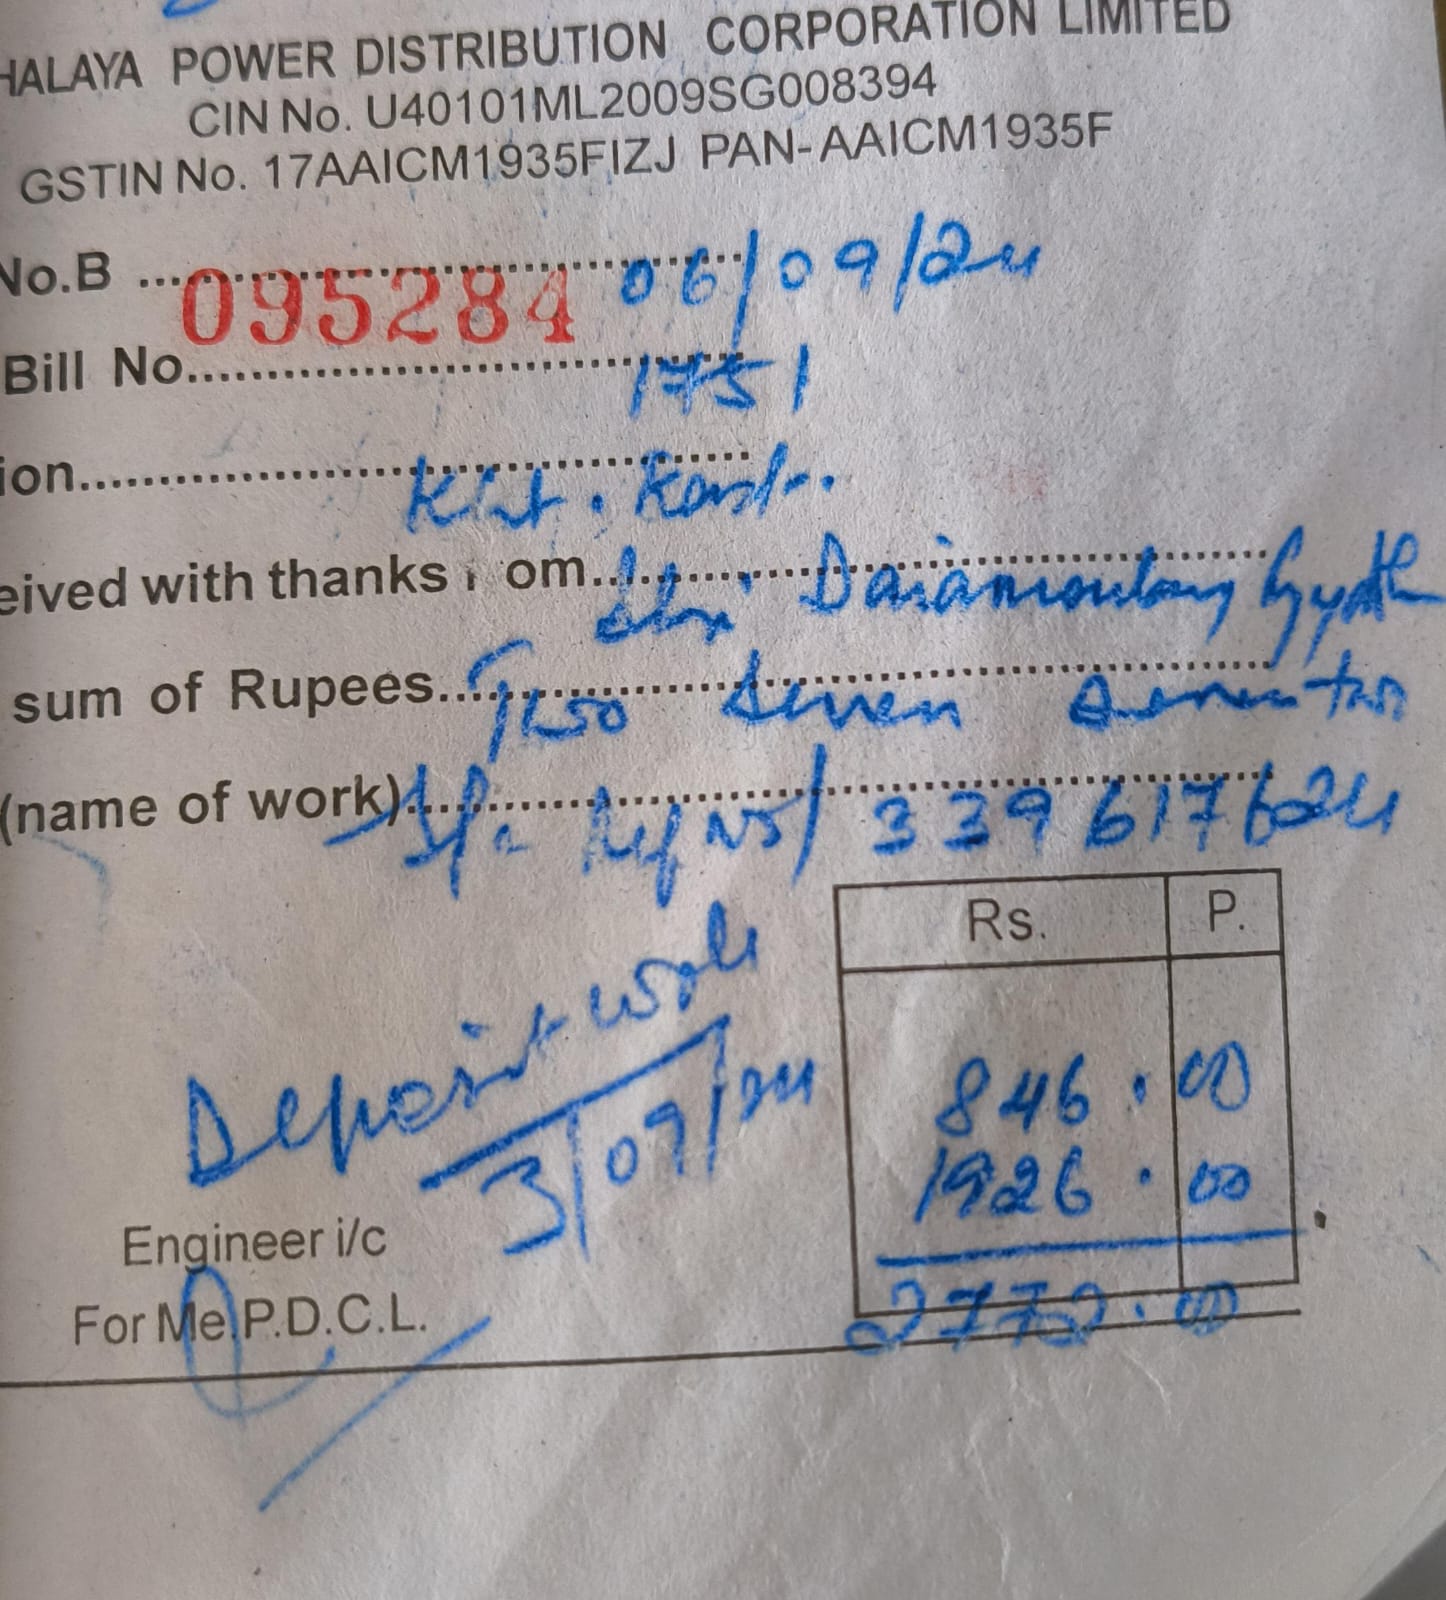 HALAYA POWER DISTRIBUTION CORPORATION LIMITED
CIN No. U40101ML2009SG008394
GSTIN No. 17AAICM1935FIZJ PAN-AAICM1935F
No.B ... 095284 06/09/24
Bill No... 1751
ion...
eived with thanks om... Daiamonlang
sum of Rupees... Two Seven Seven two
(name of work)... 339617624
Rs. P.
Deposit work
3/09/24
846.00
1926.00
2772.00
Engineer i/c
For Me.P.D.C.L.